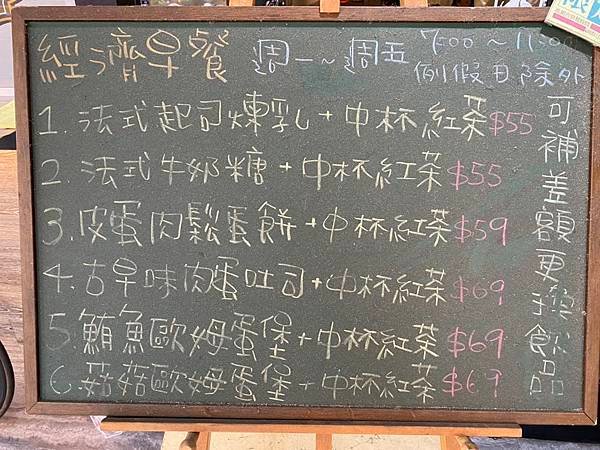 經濟早餐 週一~週五 7:00~11:00
例假日除外
1. 法式起司煉乳+中杯紅茶$55
2. 法式牛奶糖+中杯紅茶$55
3. 皮蛋肉鬆蛋餅+中杯紅茶$59
4. 古早味肉蛋吐司+中杯紅茶$69
5. 鮪魚歐姆蛋堡+中杯紅茶$69
6. 菇菇歐姆蛋堡+中杯紅茶$69
可補差額更換飲品